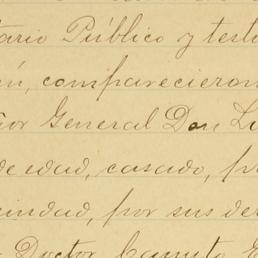 tario Público y testi
ún, comparecieron
ñor General Don Lu
de edad, casado, pr
cindad, por sus der
Doctor Canuto E